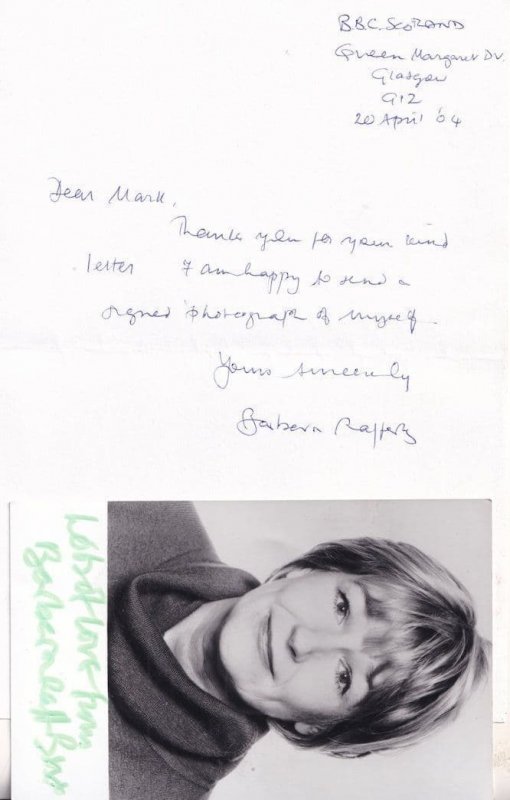 BBC. SCOTLAND
Queen Margaret Dv.
Glasgow
G12
20 April '04
Dear Mark,
Thank you for your kind
letter I am happy to send a
signed photograph of myself.
Yours sincerely
Barbara Rafferty
Lots of love from
Barbara Rafferty